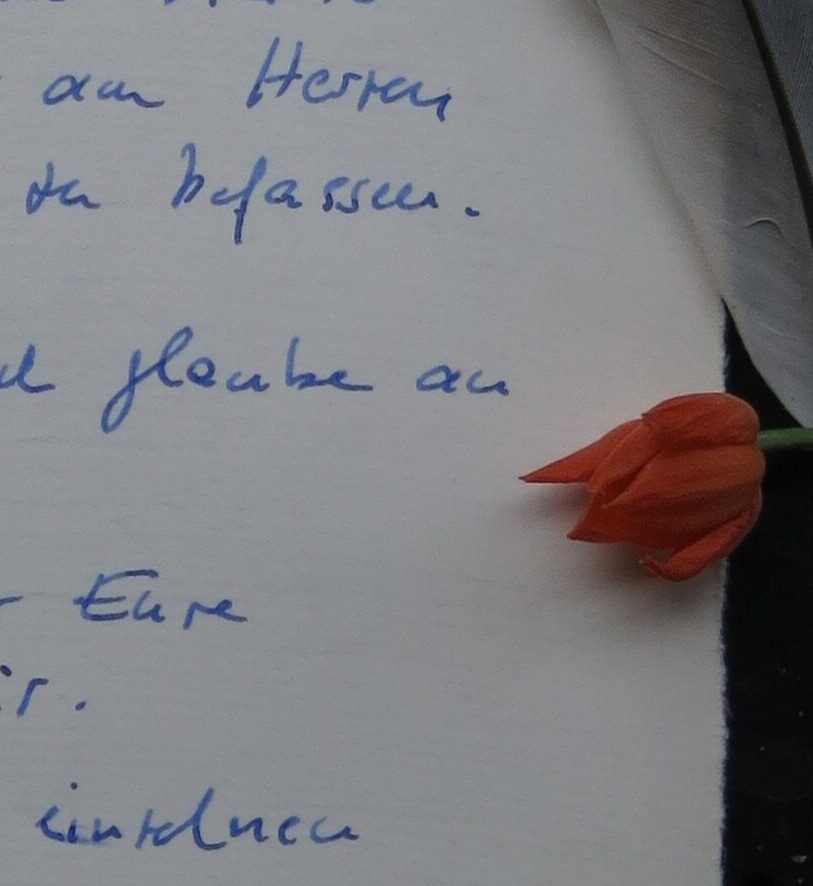 am Herzen
zu befassen.
glaube an
Eure
einzelnen